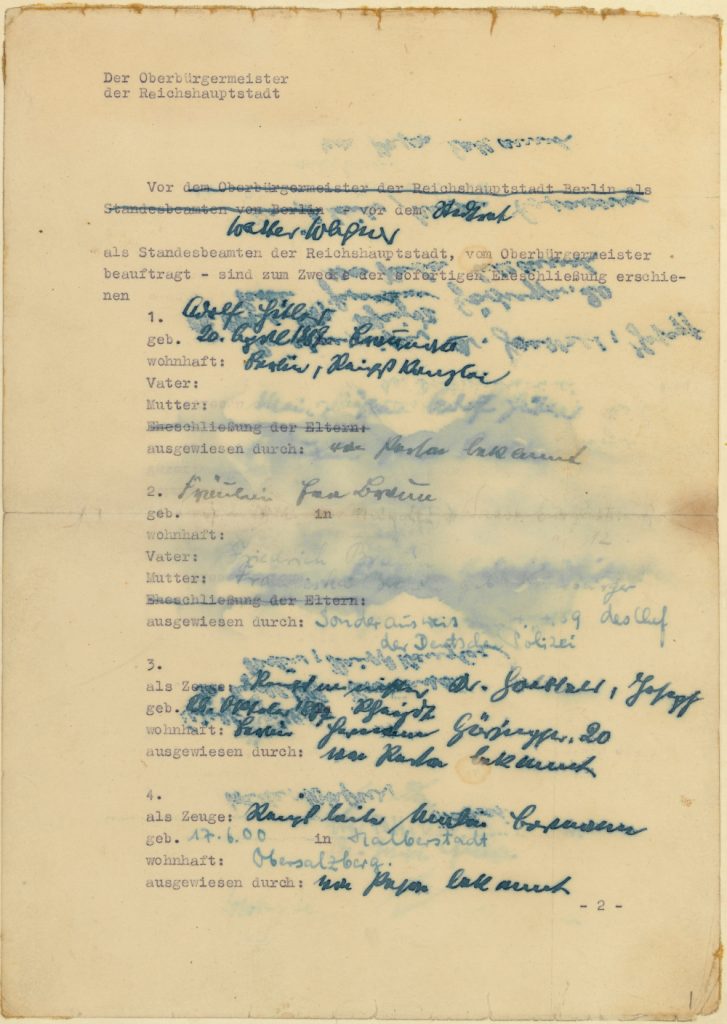 Der Oberbürgermeister
der Reichshauptstadt
Vor dem Oberbürgermeister der Reichshauptstadt Berlin als
Standesbeamten von Berlin vor dem Stadtrat
Walter Wagner
als Standesbeamten der Reichshauptstadt, vom Oberbürgermeister
beauftragt - sind zum Zwecke der sofortigen Eheschließung erschie-
nen
1. Adolf Hitler
geb. 20. April 1889 Braunau
wohnhaft: Berlin, Reichskanzlei
Vater:
Mutter:
Eheschließung der Eltern:
ausgewiesen durch: von Person bekannt
2. Fräulein Eva Braun
geb. in
wohnhaft:
Vater: Friedrich
Mutter:
Eheschließung der Eltern:
ausgewiesen durch: Sonderausweis des Chef
der Deutschen Polizei
3.
als Zeuge: Reichsminister Dr. Goebbels, Joseph
geb. 26. Oktober 1897 Rheydt
wohnhaft: Berlin Hermann Göringstr. 20
ausgewiesen durch: von Person bekannt
4.
als Zeuge: Reichsleiter Martin Bormann
geb. 17.6.00 in Halberstadt
wohnhaft: Obersalzberg.
ausgewiesen durch: von Person bekannt
- 2 -